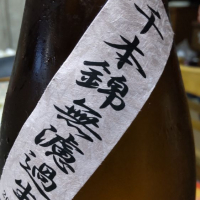 千本錦無濾過生